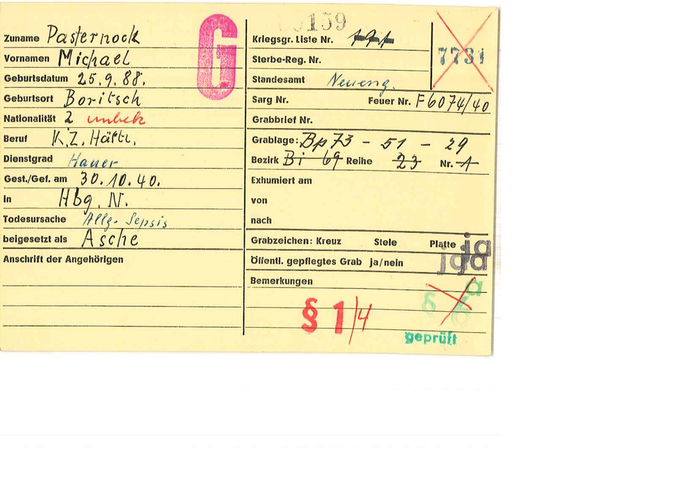 Zuname Pasternock
Vornamen Michael
Geburtsdatum 25.9.88.
Geburtsort Boritsch
Nationalität 2 unbek
Beruf K.Z. Häftl.
Dienstgrad Hauer
Gest./Gef. am 30.10.40.
in Hbg. N.
Todesursache Allg. Sepsis
beigesetzt als Asche
Anschrift der Angehörigen
G
159
Kriegsgr. Liste Nr.
7731
Sterbe-Reg. Nr.
Standesamt Neueng.
Sarg Nr. Feuer Nr. F6074/40
Grabbrief Nr.
Grablage: Bp73 - 51 - 29
Bezirk Bi 69 Reihe 23 Nr. 1
Exhumiert am
von
nach
Grabzeichen: Kreuz Stele Platte ja
Öffentl. gepflegtes Grab ja/nein ja
Bemerkungen
§ 1/4
§
geprüft